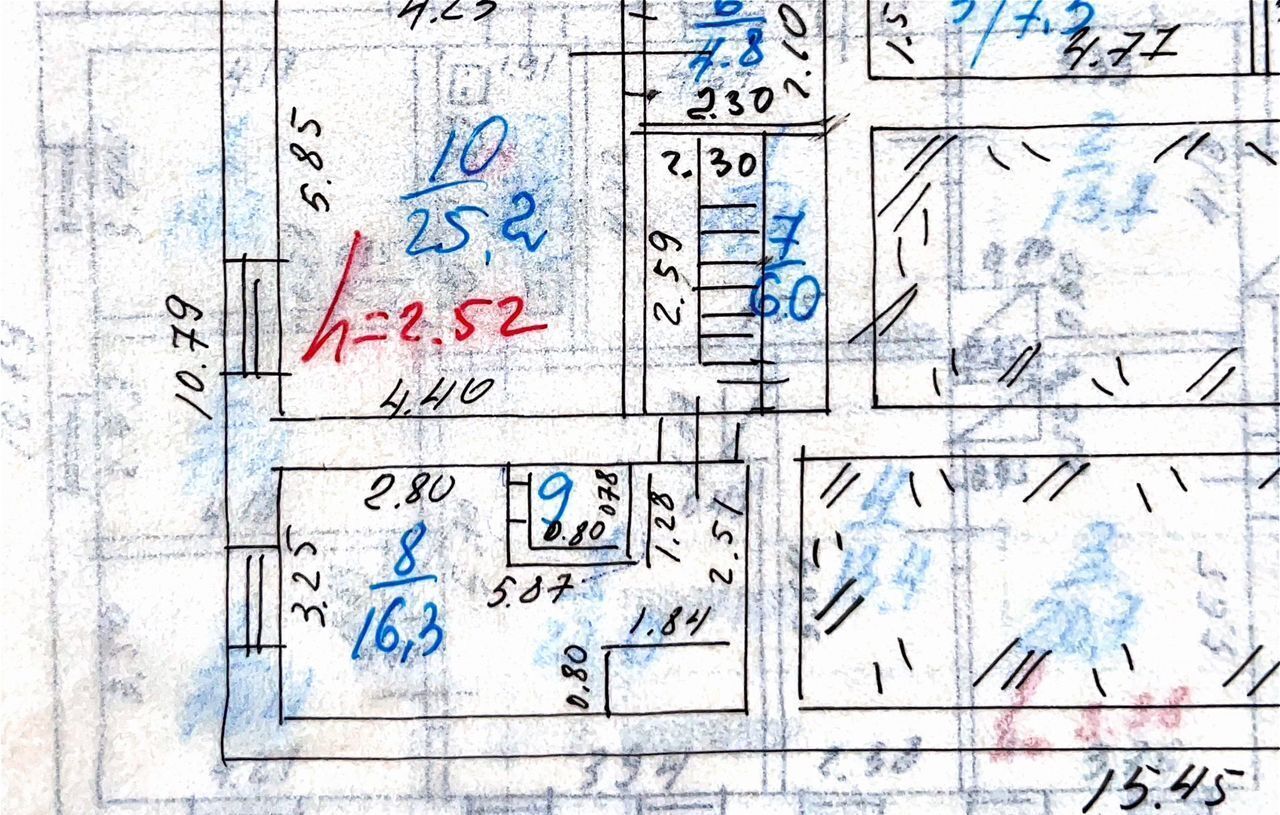 4.77
4.8
2.10
2.30
5.85
10
25,2
2.30
2.59
7
6.0
h=2.52
10.79
4.40
2.80
9
0.78
0.80
1.28
2.51
3.25
8
16,3
5.07
1.84
0.80
15.45